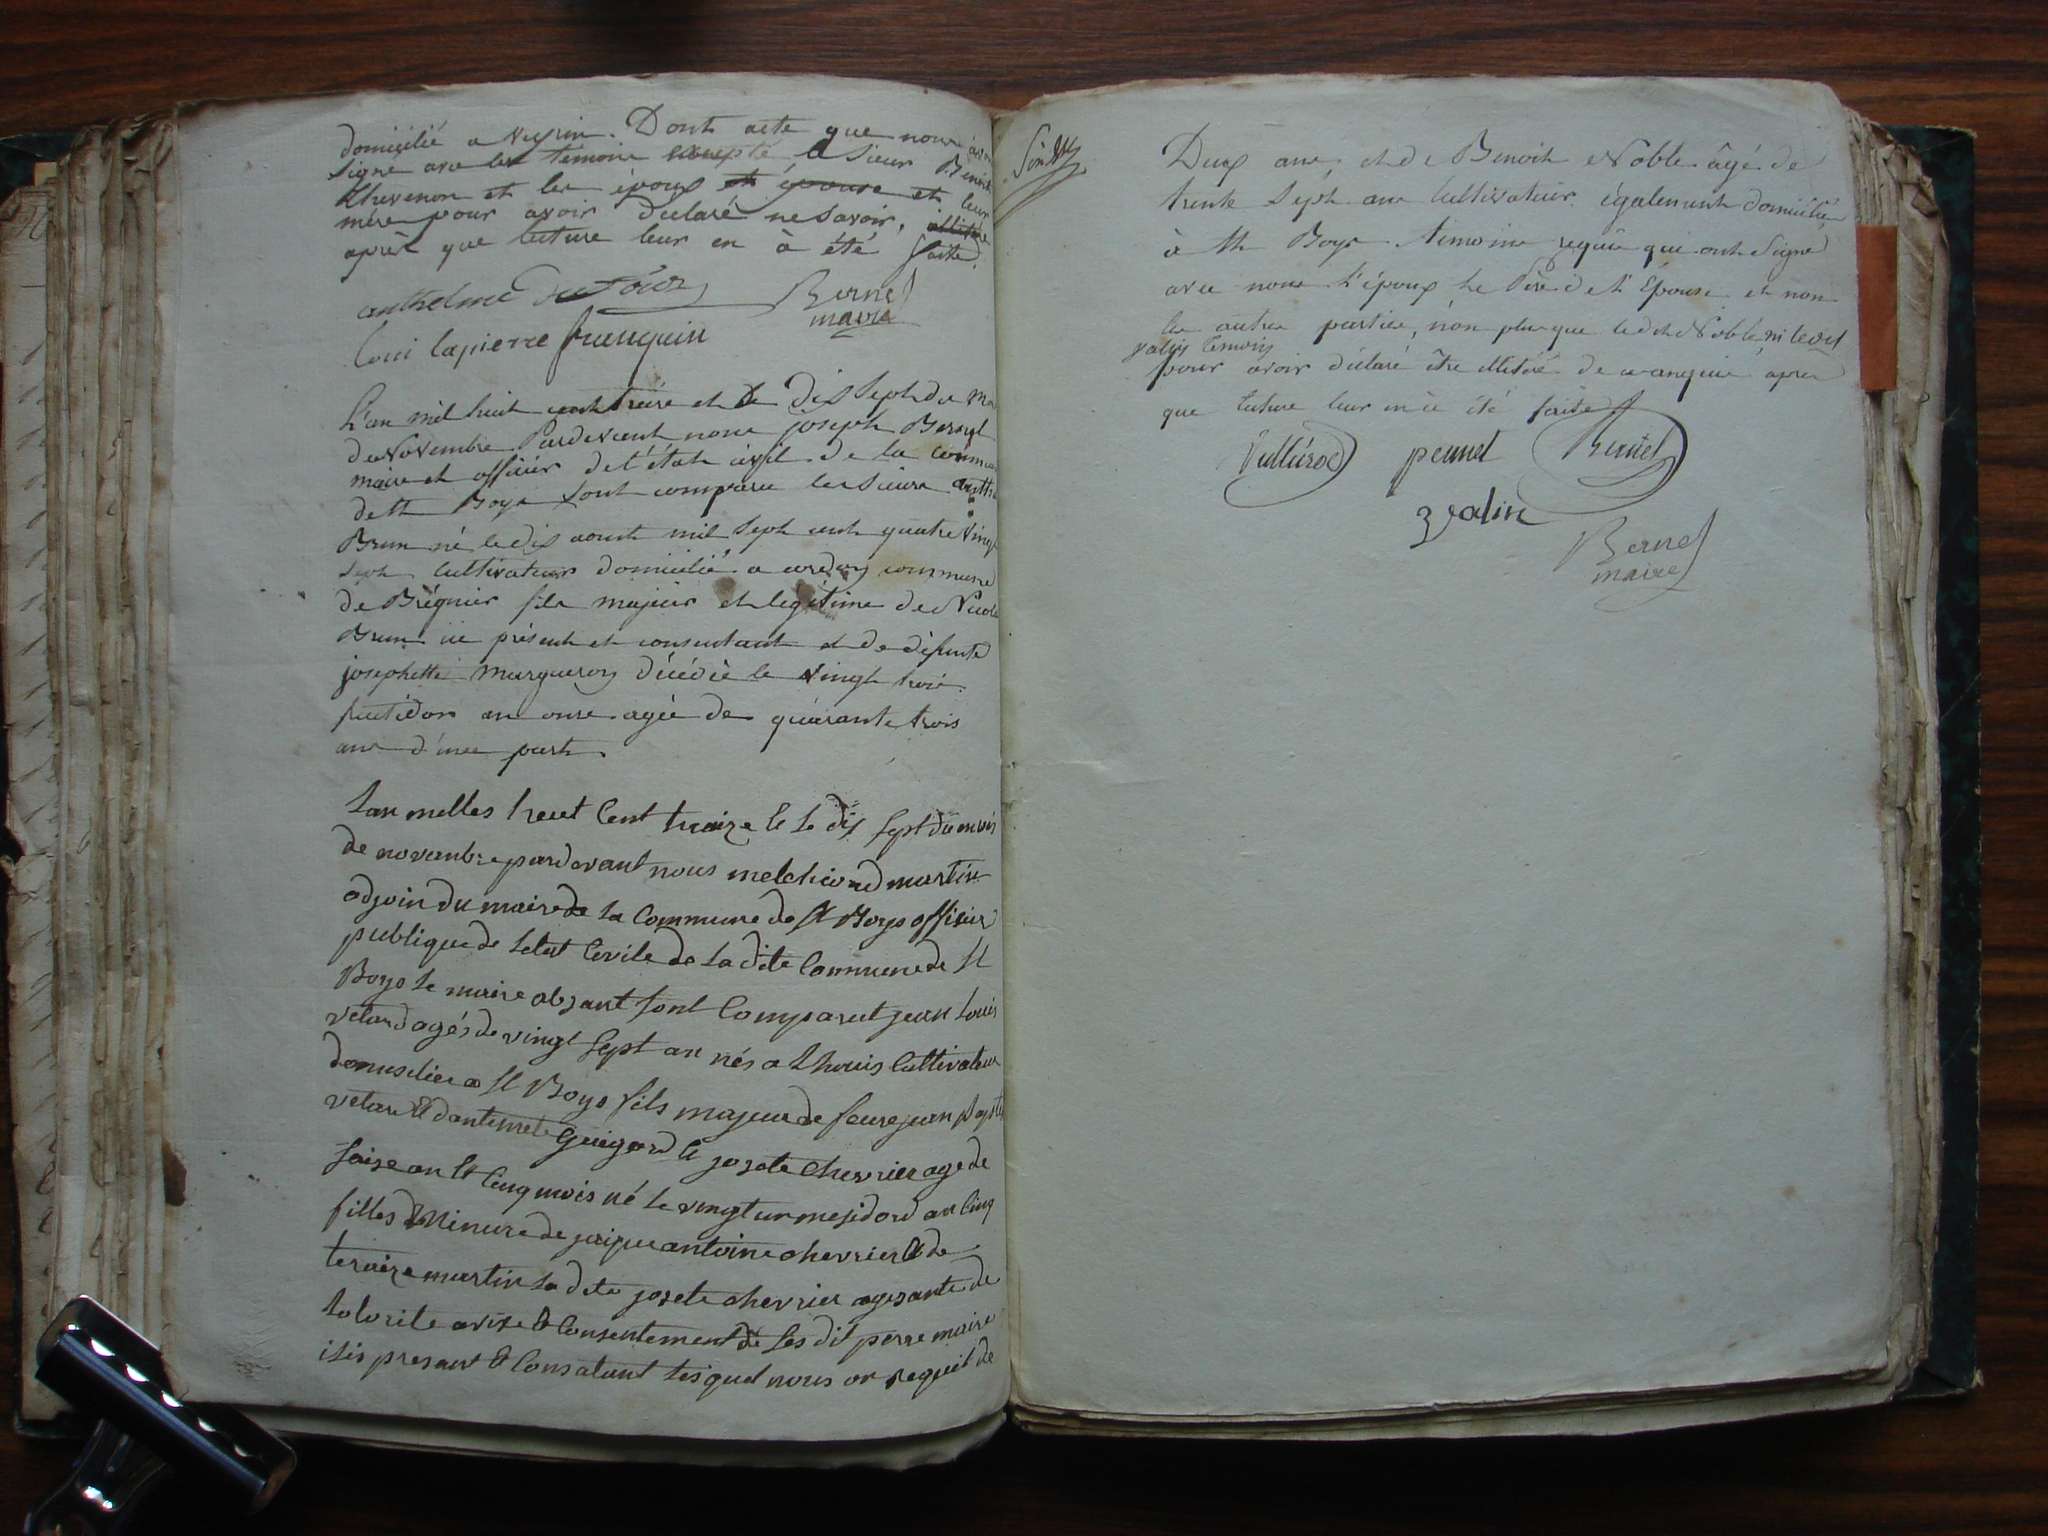 domicilié a Veyrin. Dont acte que nous avons
signé avec les témoins excepté le Sieur Benoit
Thevenon et les époux et épouse et leur
mère pour avoir déclaré ne savoir,
après que lecture leur en à été faite.
anthelme
Bernel
maire
Loui lapierre françuin
L'an mil huit cent treize et le Dix Sept du Mois
de Novembre Pardevant nous joseph Bernel
maire et officier de l'état civil de la commune
de St Boys sont comparu les sieurs
Brun né le dix aoust mil sept cent quatre vingt
sept cultivateur domicilié a cordon commune
de Brégnier fils majeur et legitime de Nicolas
Brun ici présent et consentant et de défunte
josephette Margueron décédée le vingt trois
fructidor an onze agée de quarante trois
ans d'une part.
Lan melles heuet Cent traize le le dix sept du mois
de novembre pardevant nous melchiord martin
adjoin du maire de la Commune de St Boys offisier
publique de letat Cevile de la dite Commune de St
Boys le maire absant sont Comparut jean Louis
vetard agés de vingt sept an nés a Lhouis Cultivateur
domuselier a St Boys fils majeur de feure jean Bapte
vetard & dantemete Guigard le josete Chevrier age de
saise an & Cinq mois né le vingt un mesidord an Cinq
filles Minure de jaique antoine chevrier & de
teraize martin la dite josete chevrier agesante de
lotorite avise & Consentement de ses dit perre maire
isis presant & Consatant lesquel nous on requit de
Deux ans, et de Benoit Noble âgé de
trente Sept ans Cultivateur également domicilié
à St Boys témoins requis qui ont Signé
avec nous l'époux le Père de l'Épouse et non
les autres parties, non plus que ledit Noble ni ledit
valin témoin
pour avoir déclaré être illitéré de ce enquis après
que lecture leur en à été faite
Vulliérod pernet Bernel
valin
Bernel
maire